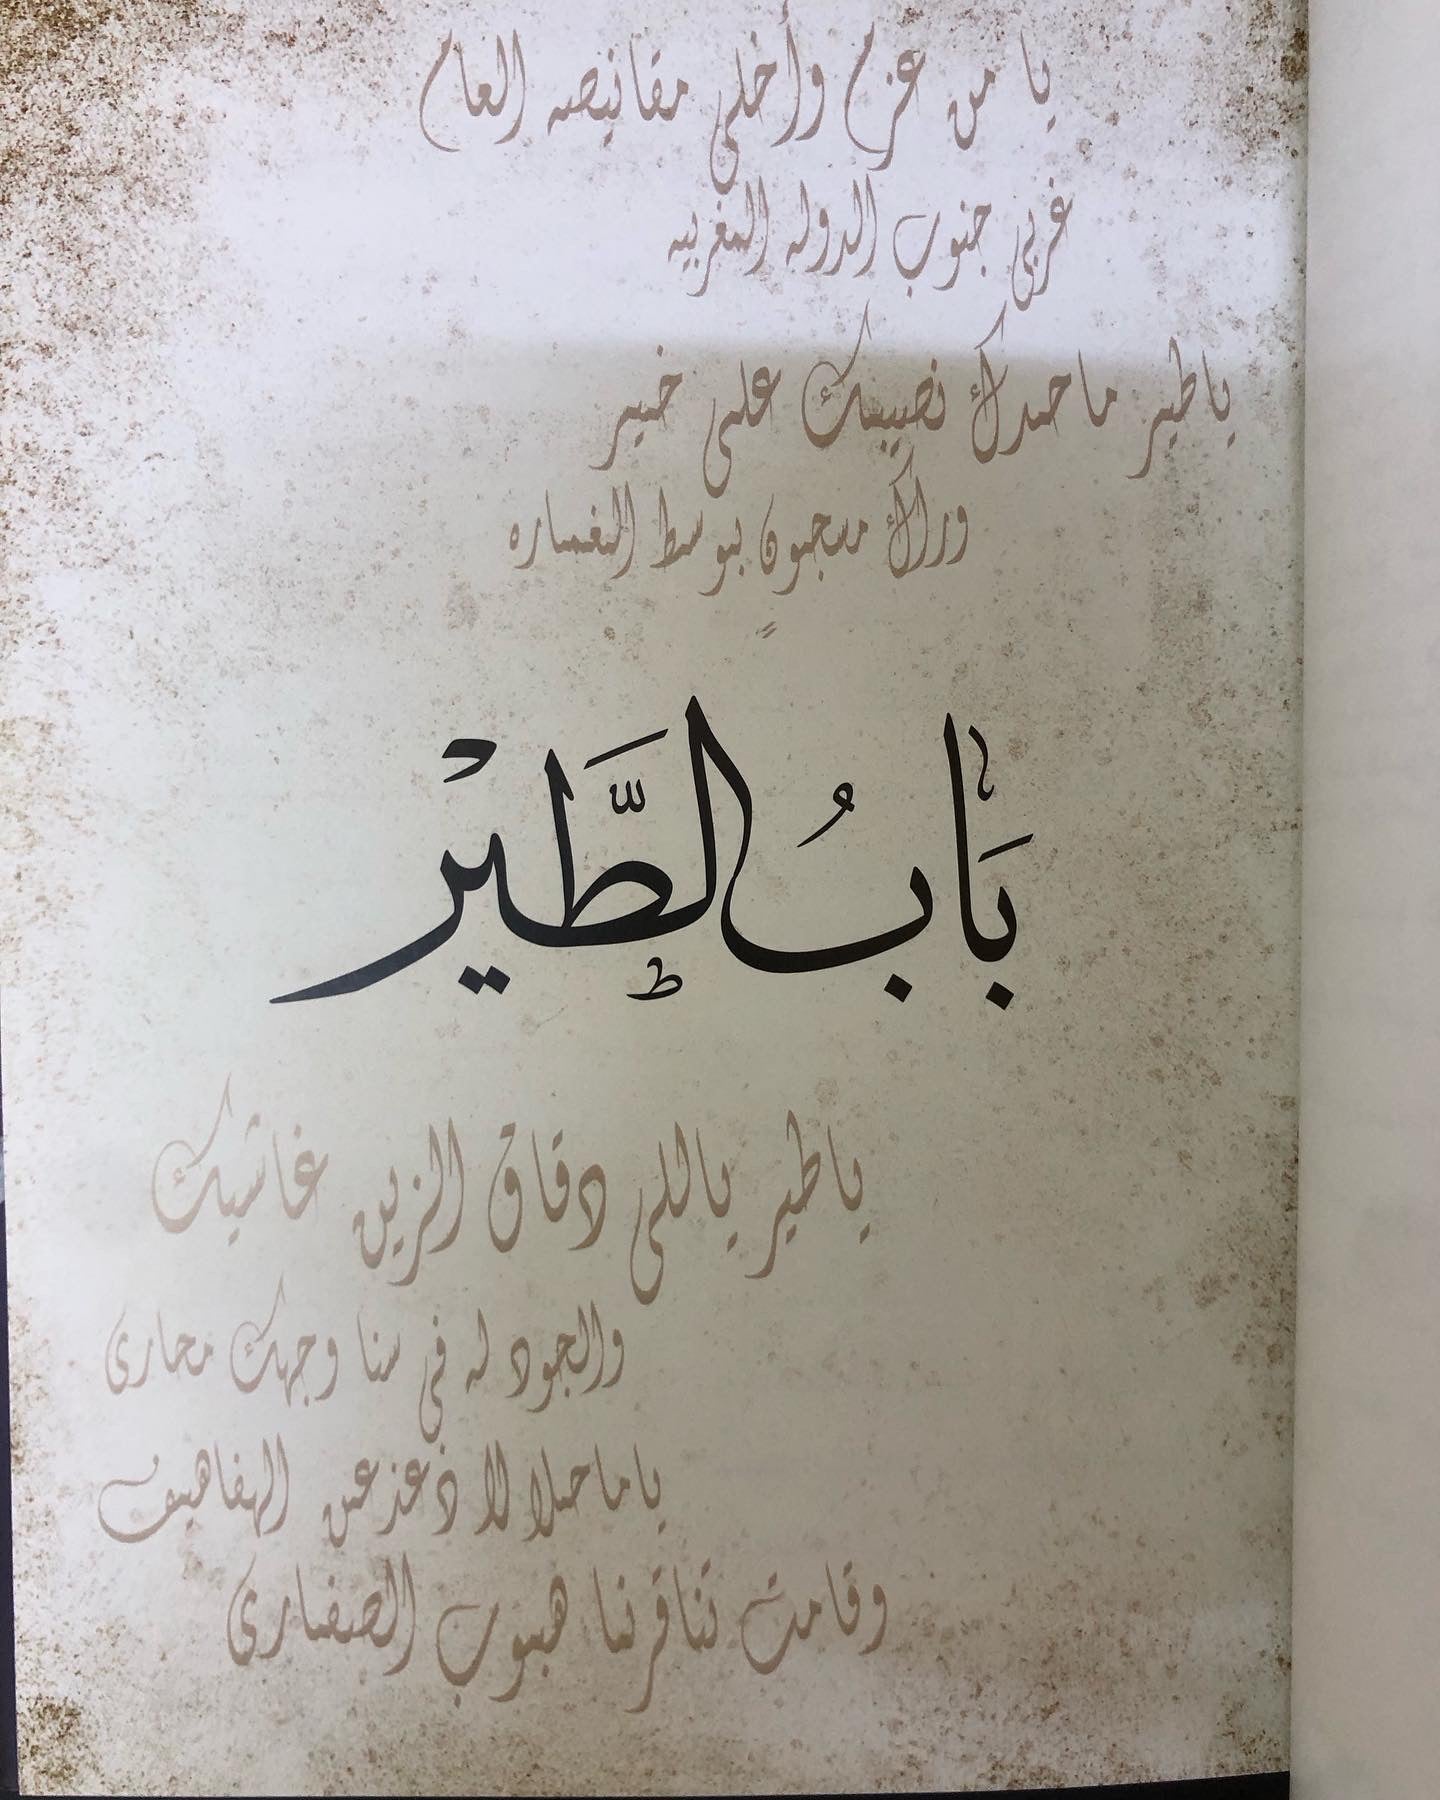 يا من عزم وأخلى مقانيصه العام
غربي جنوب الدوله المغربيه
ياطير ماحدك نصيبك على خير
وراك مسجون بوسط الغماره
بَابُ الطَّيْر
ياطير ياللي دقاق الزين غاشيك
والجود له في سنا وجهك محارى
ياماحلا لا ذعذعن الهفاهيف
وقامت تناقرنا هبوب الصفارى